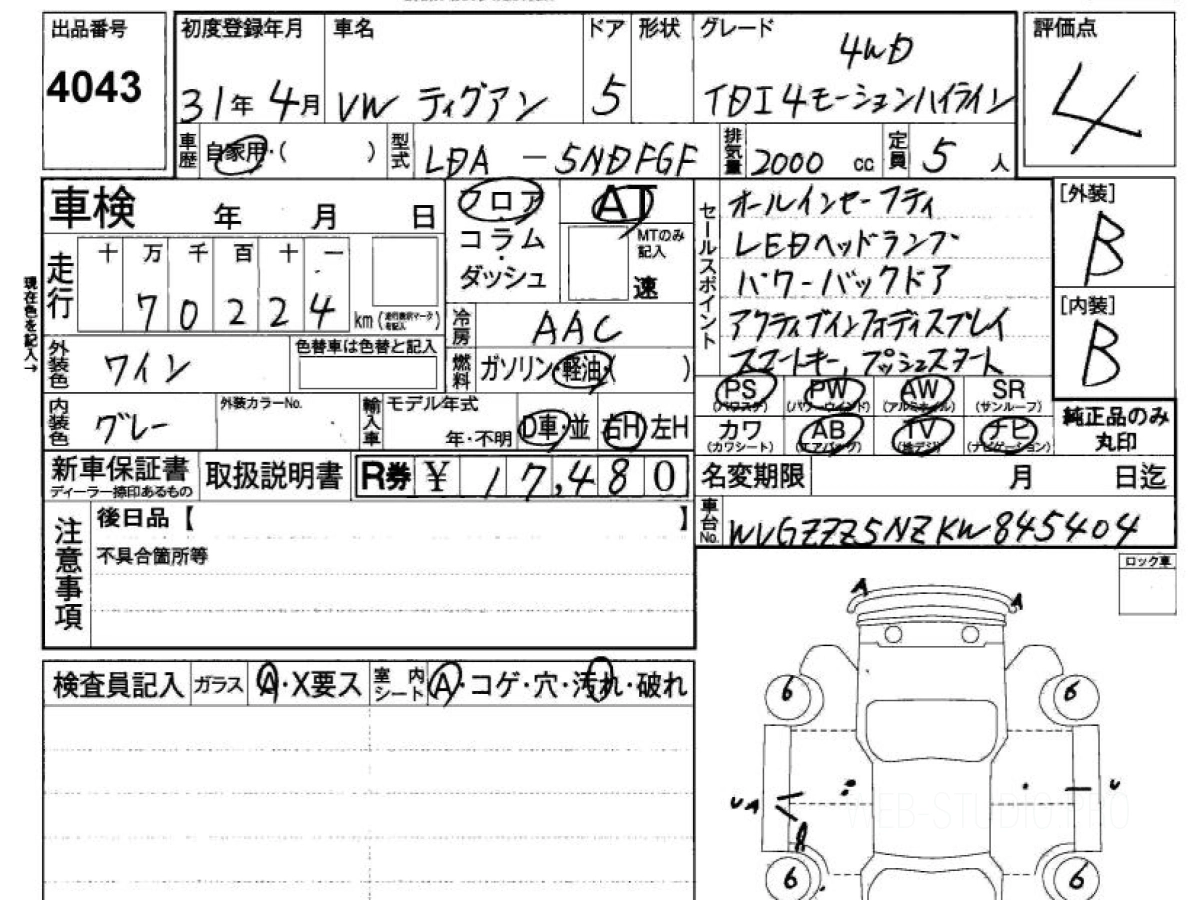 出品番号
4043
初度登録年月 車名 ドア 形状 グレード
4WD
31年 4月 VW ティグアン 5 TDI 4モーションハイライン
評価点
4
車歴 自家用・( ) 型式 LDA-5NDFGF 排気量 2000 cc 定員 5 人
車検 年 月 日
走行 十 万 千 百 十 一
7 0 2 2 4 km (走行表示マークを記入)
現在色を記入→
外装色 ワイン 色替車は色替と記入
内装色 グレー 外装カラーNo.
フロア
コラム
・
ダッシュ
AT
MTのみ記入
速
冷房 AAC
燃料 ガソリン・軽油・( )
輸入車 モデル年式
年・不明 D車・並 右H 左H
セールスポイント
オールインセーフティ
LEDヘッドランプ
パワーバックドア
アクティブインフォディスプレイ
スマートキー, プッシュスタート
[外装]
B
[内装]
B
PS (パワステ) PW (パワーウインド) AW (アルミホイル) SR (サンルーフ)
カワ (カワシート) AB (エアバッグ) TV (地デジ) ナビ (ナビゲーション)
純正品のみ
丸印
新車保証書 ディーラー捺印あるもの 取扱説明書 R券 ¥ 17,480
名変期限 月 日迄
車台No. WVGZZZ5NZKW845404
注意事項
後日品【 】
不具合箇所等
ロック車
検査員記入 ガラス A・X要ス 室内シート A・コゲ・穴・汚れ・破れ
A A
6 6
U A U
A
6 6
WEB-STUDIO.PRO